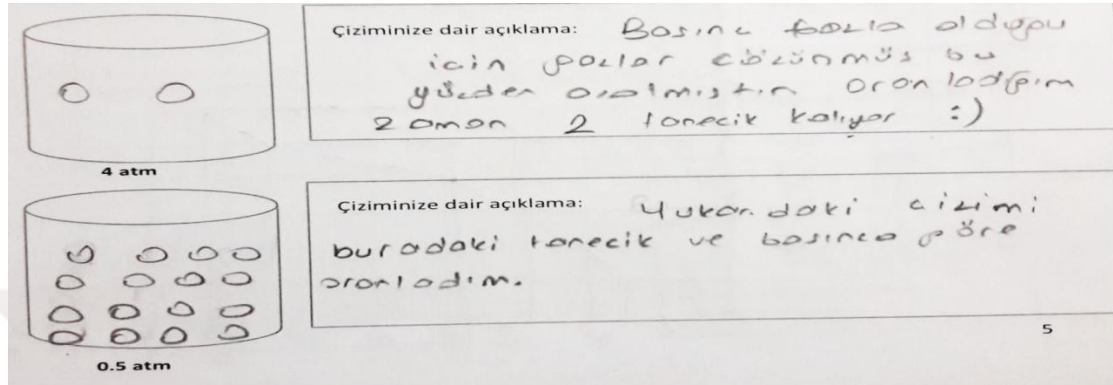 Çiziminize dair açıklama: Basınç fazla olduğu
için gazlar çözünmüş bu
yüzden azalmıştır. Oranladığım
zaman 2 tanecik kalıyor :)
4 atm
Çiziminize dair açıklama: Yukarıdaki çizimi
buradaki tanecik ve basınca göre
oranladım.
5
0.5 atm